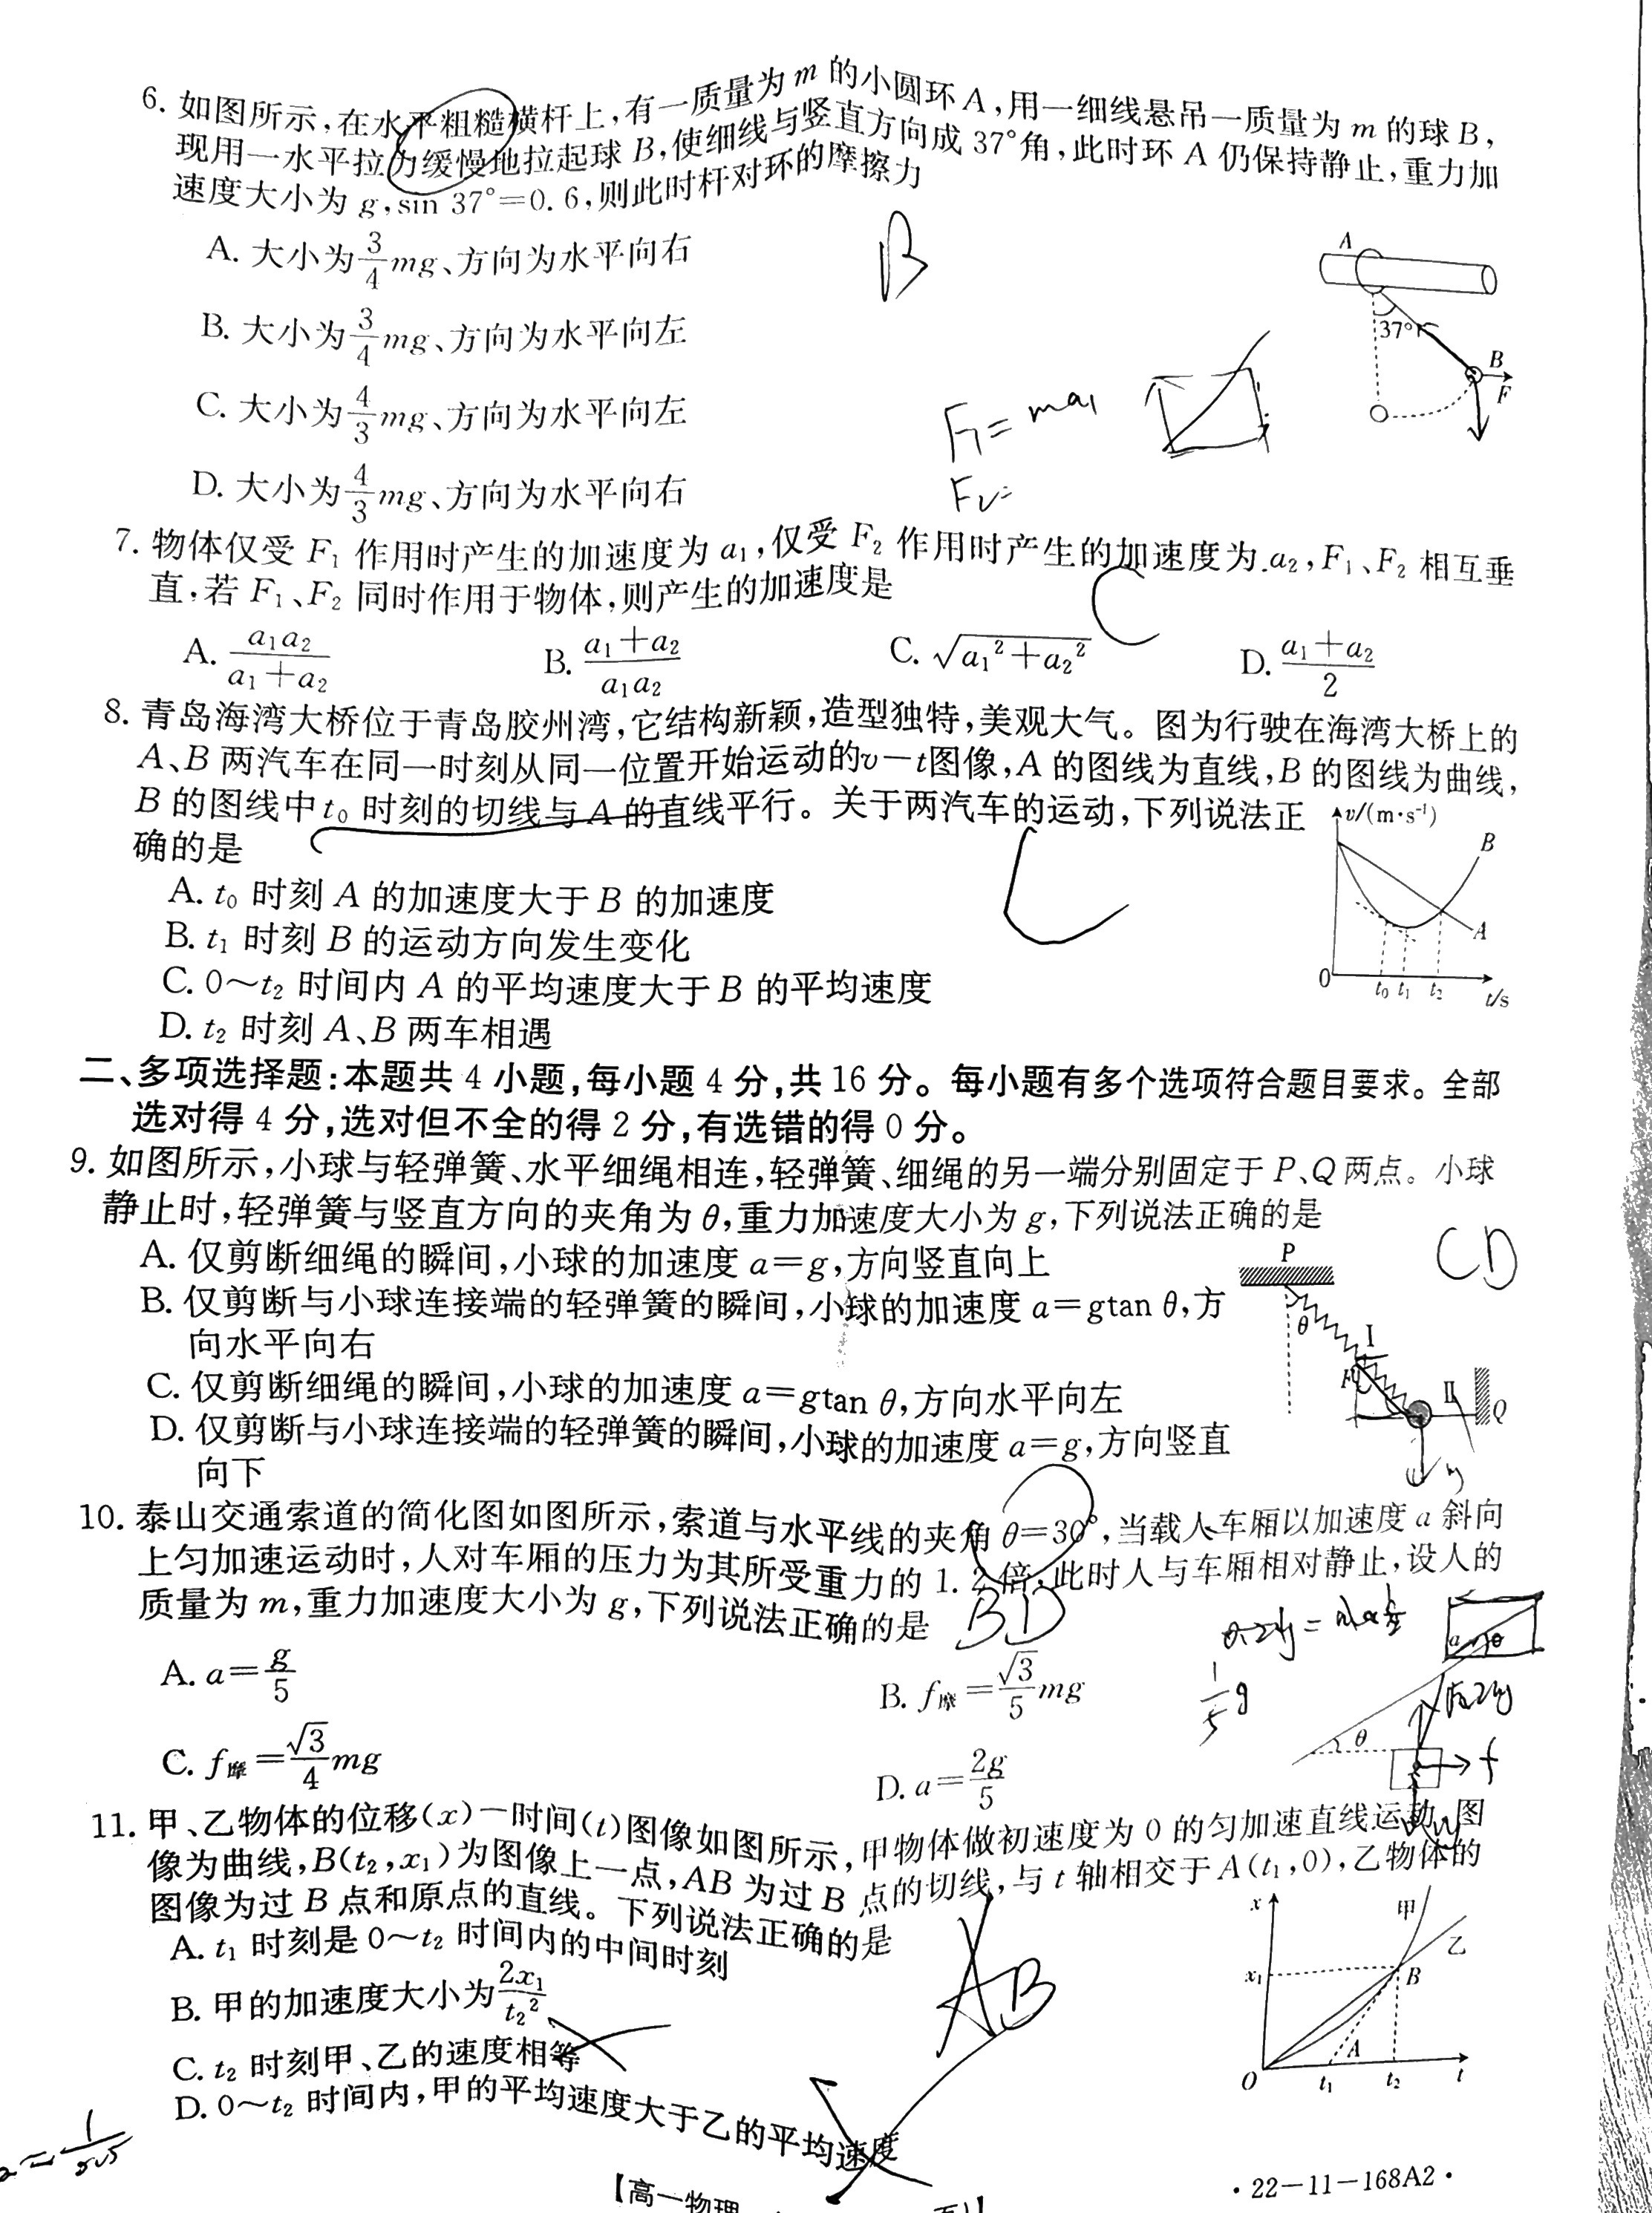 6. 如图所示,在水平粗糙横杆上,有一质量为 m 的小圆环 A,用一细线悬吊一质量为 m 的球 B,
现用一水平拉力缓慢地拉起球 B,使细线与竖直方向成 37°角,此时环 A 仍保持静止,重力加
速度大小为 g,sin 37°=0.6,则此时杆对环的摩擦力
A. 大小为 3/4 mg、方向为水平向右
B
B. 大小为 3/4 mg、方向为水平向左
C. 大小为 4/3 mg、方向为水平向左
D. 大小为 4/3 mg、方向为水平向右
A
37°
B
F
F₁= ma₁
F₂=
7. 物体仅受 F₁ 作用时产生的加速度为 a₁,仅受 F₂ 作用时产生的加速度为 a₂,F₁、F₂ 相互垂
直,若 F₁、F₂ 同时作用于物体,则产生的加速度是
C
A. a₁a₂/(a₁+a₂) B. (a₁+a₂)/a₁a₂ C. √(a₁²+a₂²) D. (a₁+a₂)/2
8. 青岛海湾大桥位于青岛胶州湾,它结构新颖,造型独特,美观大气。图为行驶在海湾大桥上的
A、B 两汽车在同一时刻从同一位置开始运动的v-t图像,A 的图线为直线,B 的图线为曲线,
B 的图线中 t₀ 时刻的切线与 A 的直线平行。关于两汽车的运动,下列说法正
确的是
C
A. t₀ 时刻 A 的加速度大于 B 的加速度
B. t₁ 时刻 B 的运动方向发生变化
C. 0~t₂ 时间内 A 的平均速度大于 B 的平均速度
D. t₂ 时刻 A、B 两车相遇
v/(m·s⁻¹)
B
A
0 t₀ t₁ t₂ t/s
二、多项选择题:本题共 4 小题,每小题 4 分,共 16 分。每小题有多个选项符合题目要求。全部
选对得 4 分,选对但不全的得 2 分,有选错的得 0 分。
9. 如图所示,小球与轻弹簧、水平细绳相连,轻弹簧、细绳的另一端分别固定于 P、Q 两点。小球
静止时,轻弹簧与竖直方向的夹角为 θ,重力加速度大小为 g,下列说法正确的是
CD
A. 仅剪断细绳的瞬间,小球的加速度 a=g,方向竖直向上
B. 仅剪断与小球连接端的轻弹簧的瞬间,小球的加速度 a=gtan θ,方
向水平向右
C. 仅剪断细绳的瞬间,小球的加速度 a=gtan θ,方向水平向左
D. 仅剪断与小球连接端的轻弹簧的瞬间,小球的加速度 a=g,方向竖直
向下
P
θ
Ⅰ
Ⅱ
Q
10. 泰山交通索道的简化图如图所示,索道与水平线的夹角 θ=30°,当载人车厢以加速度 a 斜向
上匀加速运动时,人对车厢的压力为其所受重力的 1.2 倍,此时人与车厢相对静止,设人的
质量为 m,重力加速度大小为 g,下列说法正确的是
BD
A. a=g/5 B. f摩=√3/5 mg
C. f摩=√3/4 mg D. a=2g/5
1/5 g
θ
f
11. 甲、乙物体的位移(x)-时间(t)图像如图所示,甲物体做初速度为 0 的匀加速直线运动,图
像为曲线,B(t₂,x₁)为图像上一点,AB 为过 B 点的切线,与 t 轴相交于 A(t₁,0),乙物体的
图像为过 B 点和原点的直线。下列说法正确的是
AB
A. t₁ 时刻是 0~t₂ 时间内的中间时刻
B. 甲的加速度大小为 2x₁/t₂²
C. t₂ 时刻甲、乙的速度相等
D. 0~t₂ 时间内,甲的平均速度大于乙的平均速度
x
甲
乙
x₁
B
A
O t₁ t₂ t
【高一物理
·22-11-168A2·